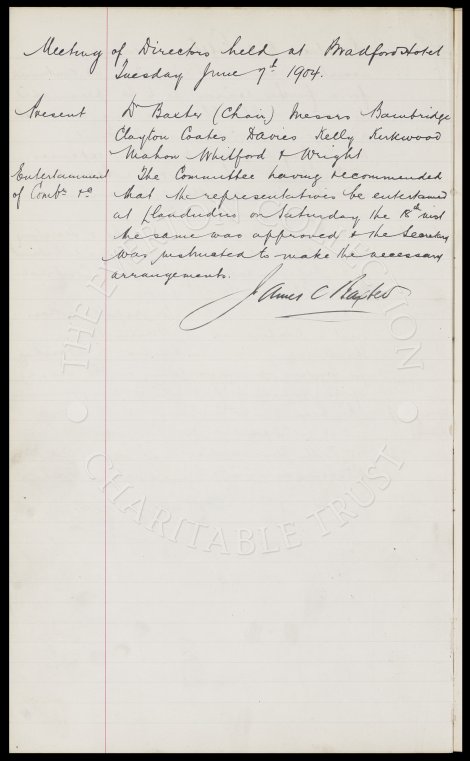 Meeting of Directors held at Bradford Hotel
Tuesday June 7th 1904.
Present Dr Baxter (Chair) Messrs Bainbridge
Clayton Coates Davies Kelly Kirkwood
Mahon Whitford & Wright
Entertainment The Committee having recommended
of &c that the representatives be entertained
at Llandudno on Saturday the 18th inst
the same was approved & the Secretary
was instructed to make the necessary
arrangements.
James C Baxter
THE EVERTON COLLECTION
CHARITABLE TRUST